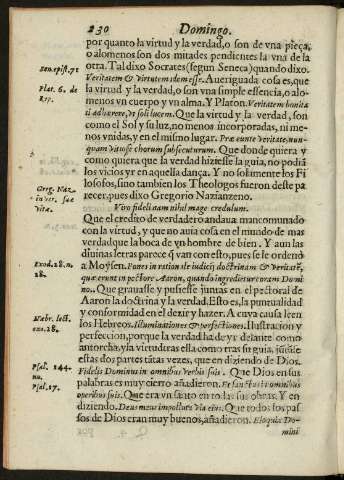 230 Domingo.
por quanto la virtud y la verdad, o son de vna pieça,
o alomenos son dos mitades pendientes la vna de la
otra. Tal dixo Socrates (segun Seneca) quando dixo.
Sen. epist. 71
Veritatem & virtutem idem esse. Aueriguada cosa es, que
Plat. 6. de
rep.
la virtud y la verdad, o son vna simple essencia, o alo-
menos vn cuerpo y vn alma. Y Platon. Veritatem bonita
ti adhærere, vt soli lucem. Que la virtud y la verdad, son
como el Sol y su luz, no menos incorporadas, ni me-
nos vnidas, y en el mismo lugar. Præeunte veritate, nun-
quam vitiose chorum subsecuturum. Que donde quiera y
como quiera que la verdad hiziesse la guia, no podia
los vicios yr en aquella dança. Y no solamente los Fi
losofos, sino tambien los Theologos fueron deste pa
Greg. Naz.
in
vitæ.
recer, pues dixo Gregorio Nazianzeno.
Viro fideli nihil mage credulum.
Que el credito de verdadero andaua mancomunado
con la virtud, y que no auia cosa en el mundo de mas
verdad que la boca de vn hombre de bien. Y aun las
diuinas letras parece q̃ van con esto, pues se le ordenò
Exod. 28. n.
28.
a Moysen. Pones in rationali iudicij doctrinam & veritatẽ,
quæ erunt in pectore Aaron, quando ingredietur coram Domi
no. Que grauasse y pusiesse juntas en el pectoral de
Aaron la doctrina y la verdad. Esto es, la puntualidad
y conformidad en el dezir y hazer. A cuya causa leen
Hebr. lect.
exo. 28.
los Hebreos. Illuminationes & perfectiones. Ilustracion y
perfeccion, porque la verdad ha de yr delante como
antorcha, y la virtud tras ella como tras su guia,
estas dos partes tãtas vezes, que en diziendo de Dios.
Psal. 144.
nu.
Fidelis Dominus in omnibus verbis suis. Que Dios en sus
Psal. 17.
palabras es muy cierto añadieron. Et sanctus in omnibus
operibus suis. Que era vn santo en todas sus obras. Y en
diziendo. Deus meus impolluta via eius. Que todos los pas
sos de Dios eran muy buenos, añadieron. Eloquia Do-
mini